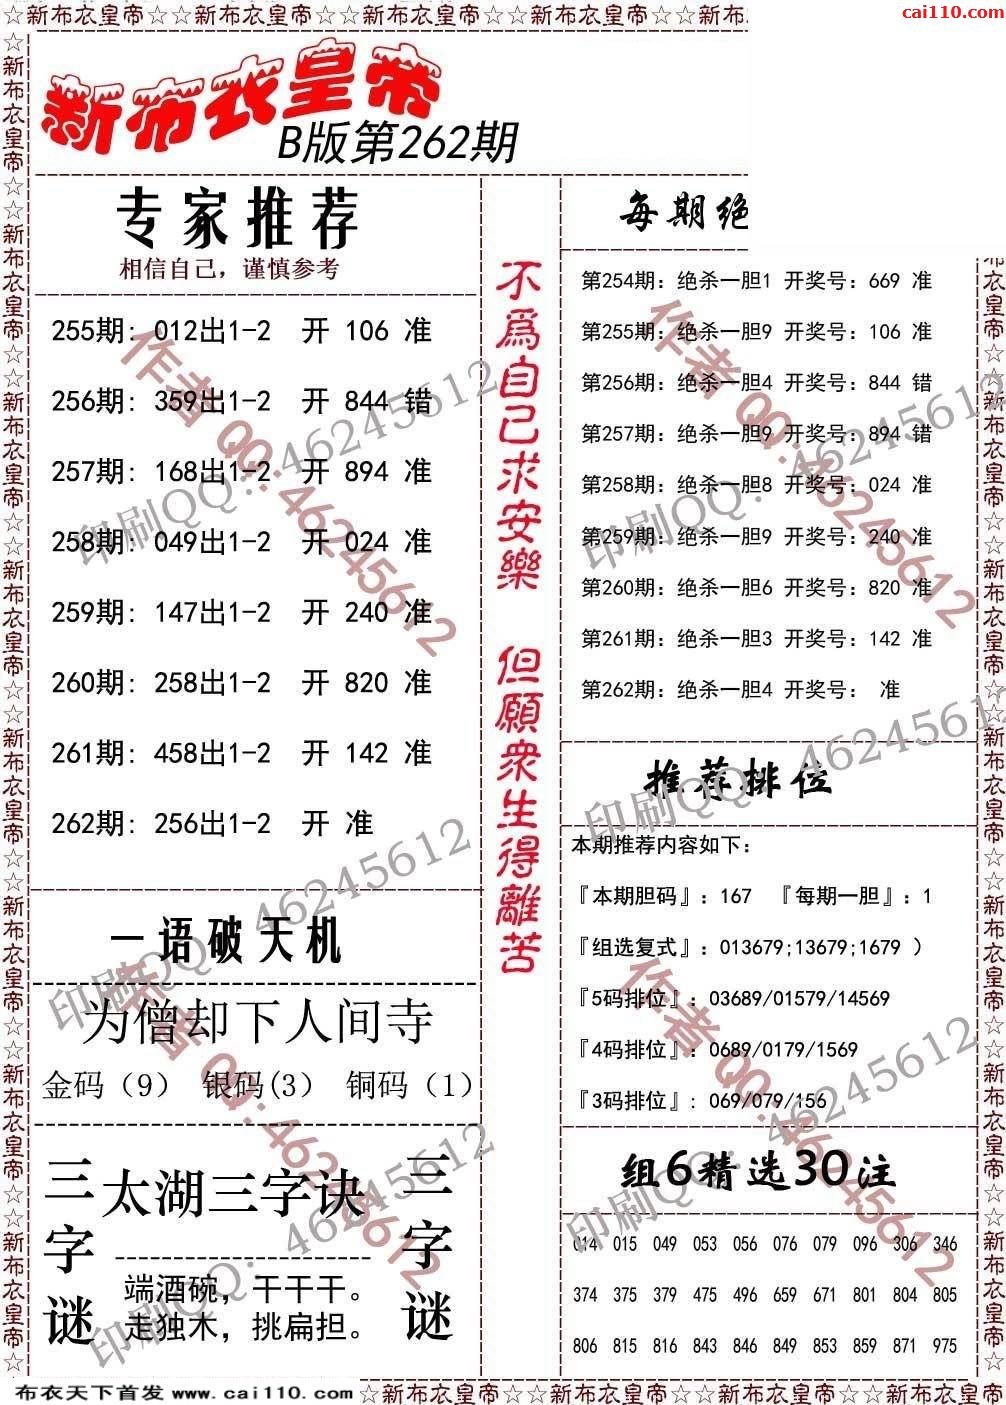 ☆新布衣皇帝☆☆新布衣皇帝☆☆新布衣皇帝☆☆新布衣皇帝☆☆新布
cai110.com
新布衣皇帝
B版第262期
专家推荐
相信自己，谨慎参考
255期: 012出1-2 开 106 准
256期: 359出1-2 开 844 错
257期: 168出1-2 开 894 准
258期: 049出1-2 开 024 准
259期: 147出1-2 开 240 准
260期: 258出1-2 开 820 准
261期: 458出1-2 开 142 准
262期: 256出1-2 开 准
一语破天机
为僧却下人间寺
金码（9） 银码(3） 铜码（1）
三字谜
太湖三字诀
端酒碗，干干干。
走独木，挑扁担。
三字谜
不為自己求安樂 但願衆生得離苦
每期绝
第254期: 绝杀一胆1 开奖号: 669 准
第255期: 绝杀一胆9 开奖号: 106 准
第256期: 绝杀一胆4 开奖号: 844 错
第257期: 绝杀一胆9 开奖号: 894 错
第258期: 绝杀一胆8 开奖号: 024 准
第259期: 绝杀一胆9 开奖号: 240 准
第260期: 绝杀一胆6 开奖号: 820 准
第261期: 绝杀一胆3 开奖号: 142 准
第262期: 绝杀一胆4 开奖号: 准
推荐排位
本期推荐内容如下:
『本期胆码』: 167 『每期一胆』: 1
『组选复式』: 013679;13679;1679 ）
『5码排位』: 03689/01579/14569
『4码排位』: 0689/0179/1569
『3码排位』: 069/079/156
组6精选30注
014 015 049 053 056 076 079 096 306 346
374 375 379 475 496 659 671 801 804 805
806 815 816 843 846 849 853 859 871 975
作者 QQ:46245612
印刷QQ: 46245612
作者 QQ:46245612
印刷QQ: 46245612
印刷QQ: 46245612
印刷QQ: 46245612
作者 QQ:46245612
作者 QQ:46245612
印刷QQ: 46245612
印刷QQ: 46245612
☆新布衣皇帝☆☆新布衣皇帝☆☆新布衣皇帝☆☆新布衣皇帝☆☆新布衣皇帝☆☆新布衣皇帝☆☆新布衣皇帝☆☆新布衣皇帝☆
衣皇帝☆☆新布衣皇帝☆☆新布衣皇帝☆☆新布衣皇帝☆☆新布衣皇帝☆☆新布衣皇帝☆☆新布衣皇帝☆
布衣天下首发 www.cai110.com
☆新布衣皇帝☆☆新布衣皇帝☆☆新布衣皇帝☆☆新布衣皇帝☆